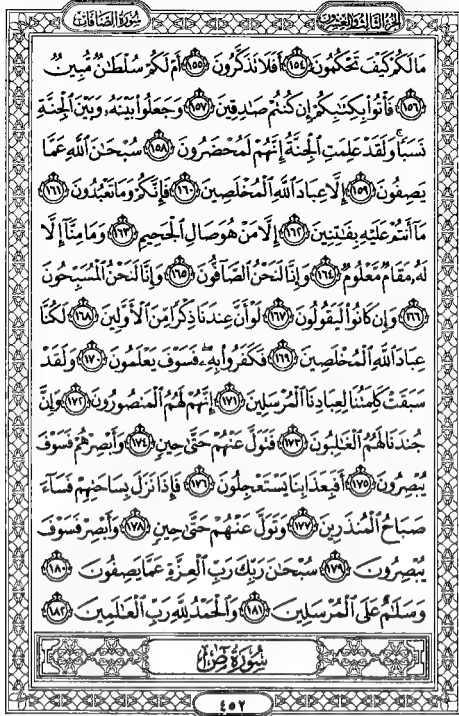 سُورَةُ الصَّافَّاتِ الجُزْءُ الثَّالِثُ وَالعِشْرُونَ
مَالَكُمْ كَيْفَ تَحْكُمُونَ ﴿١٥٤﴾ أَفَلَا تَذَكَّرُونَ ﴿١٥٥﴾ أَمْ لَكُمْ سُلْطَانٌ مُّبِينٌ
﴿١٥٦﴾ فَأْتُوا بِكِتَابِكُمْ إِن كُنتُمْ صَادِقِينَ ﴿١٥٧﴾ وَجَعَلُوا بَيْنَهُ وَبَيْنَ الْجِنَّةِ
نَسَبًا ۚ وَلَقَدْ عَلِمَتِ الْجِنَّةُ إِنَّهُمْ لَمُحْضَرُونَ ﴿١٥٨﴾ سُبْحَانَ اللَّهِ عَمَّا
يَصِفُونَ ﴿١٥٩﴾ إِلَّا عِبَادَ اللَّهِ الْمُخْلَصِينَ ﴿١٦٠﴾ فَإِنَّكُمْ وَمَا تَعْبُدُونَ ﴿١٦١﴾
مَا أَنتُمْ عَلَيْهِ بِفَاتِنِينَ ﴿١٦٢﴾ إِلَّا مَنْ هُوَ صَالِ الْجَحِيمِ ﴿١٦٣﴾ وَمَا مِنَّا إِلَّا
لَهُ مَقَامٌ مَّعْلُومٌ ﴿١٦٤﴾ وَإِنَّا لَنَحْنُ الصَّافُّونَ ﴿١٦٥﴾ وَإِنَّا لَنَحْنُ الْمُسَبِّحُونَ
﴿١٦٦﴾ وَإِن كَانُوا لَيَقُولُونَ ﴿١٦٧﴾ لَوْ أَنَّ عِندَنَا ذِكْرًا مِّنَ الْأَوَّلِينَ ﴿١٦٨﴾ لَكُنَّا
عِبَادَ اللَّهِ الْمُخْلَصِينَ ﴿١٦٩﴾ فَكَفَرُوا بِهِ ۖ فَسَوْفَ يَعْلَمُونَ ﴿١٧٠﴾ وَلَقَدْ
سَبَقَتْ كَلِمَتُنَا لِعِبَادِنَا الْمُرْسَلِينَ ﴿١٧١﴾ إِنَّهُمْ لَهُمُ الْمَنصُورُونَ ﴿١٧٢﴾ وَإِنَّ
جُندَنَا لَهُمُ الْغَالِبُونَ ﴿١٧٣﴾ فَتَوَلَّ عَنْهُمْ حَتَّىٰ حِينٍ ﴿١٧٤﴾ وَأَبْصِرْهُمْ فَسَوْفَ
يُبْصِرُونَ ﴿١٧٥﴾ أَفَبِعَذَابِنَا يَسْتَعْجِلُونَ ﴿١٧٦﴾ فَإِذَا نَزَلَ بِسَاحَتِهِمْ فَسَاءَ
صَبَاحُ الْمُنذَرِينَ ﴿١٧٧﴾ وَتَوَلَّ عَنْهُمْ حَتَّىٰ حِينٍ ﴿١٧٨﴾ وَأَبْصِرْ فَسَوْفَ
يُبْصِرُونَ ﴿١٧٩﴾ سُبْحَانَ رَبِّكَ رَبِّ الْعِزَّةِ عَمَّا يَصِفُونَ ﴿١٨٠﴾
وَسَلَامٌ عَلَى الْمُرْسَلِينَ ﴿١٨١﴾ وَالْحَمْدُ لِلَّهِ رَبِّ الْعَالَمِينَ ﴿١٨٢﴾
سُورَةُ صٓ
٤٥٢